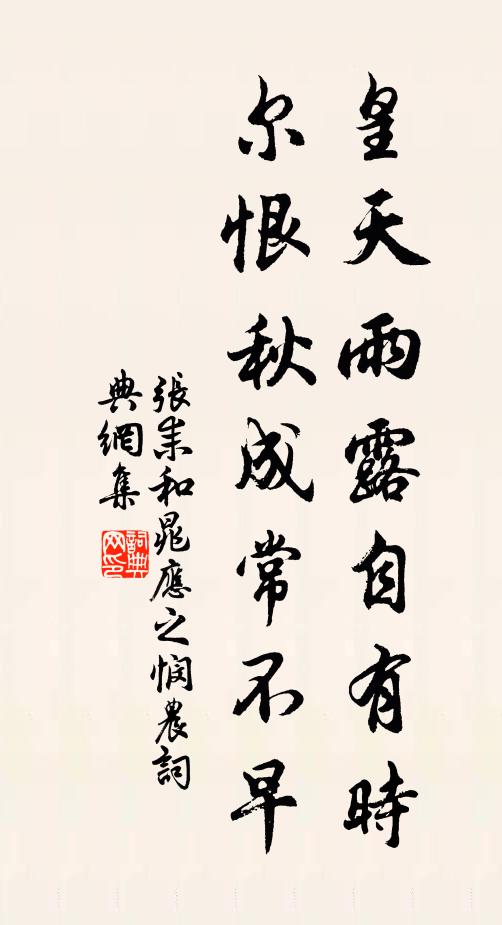 皇天雨露自有時
尔恨秋成常不早
張耒和晁應之憫農詞
典網集
詞典网印